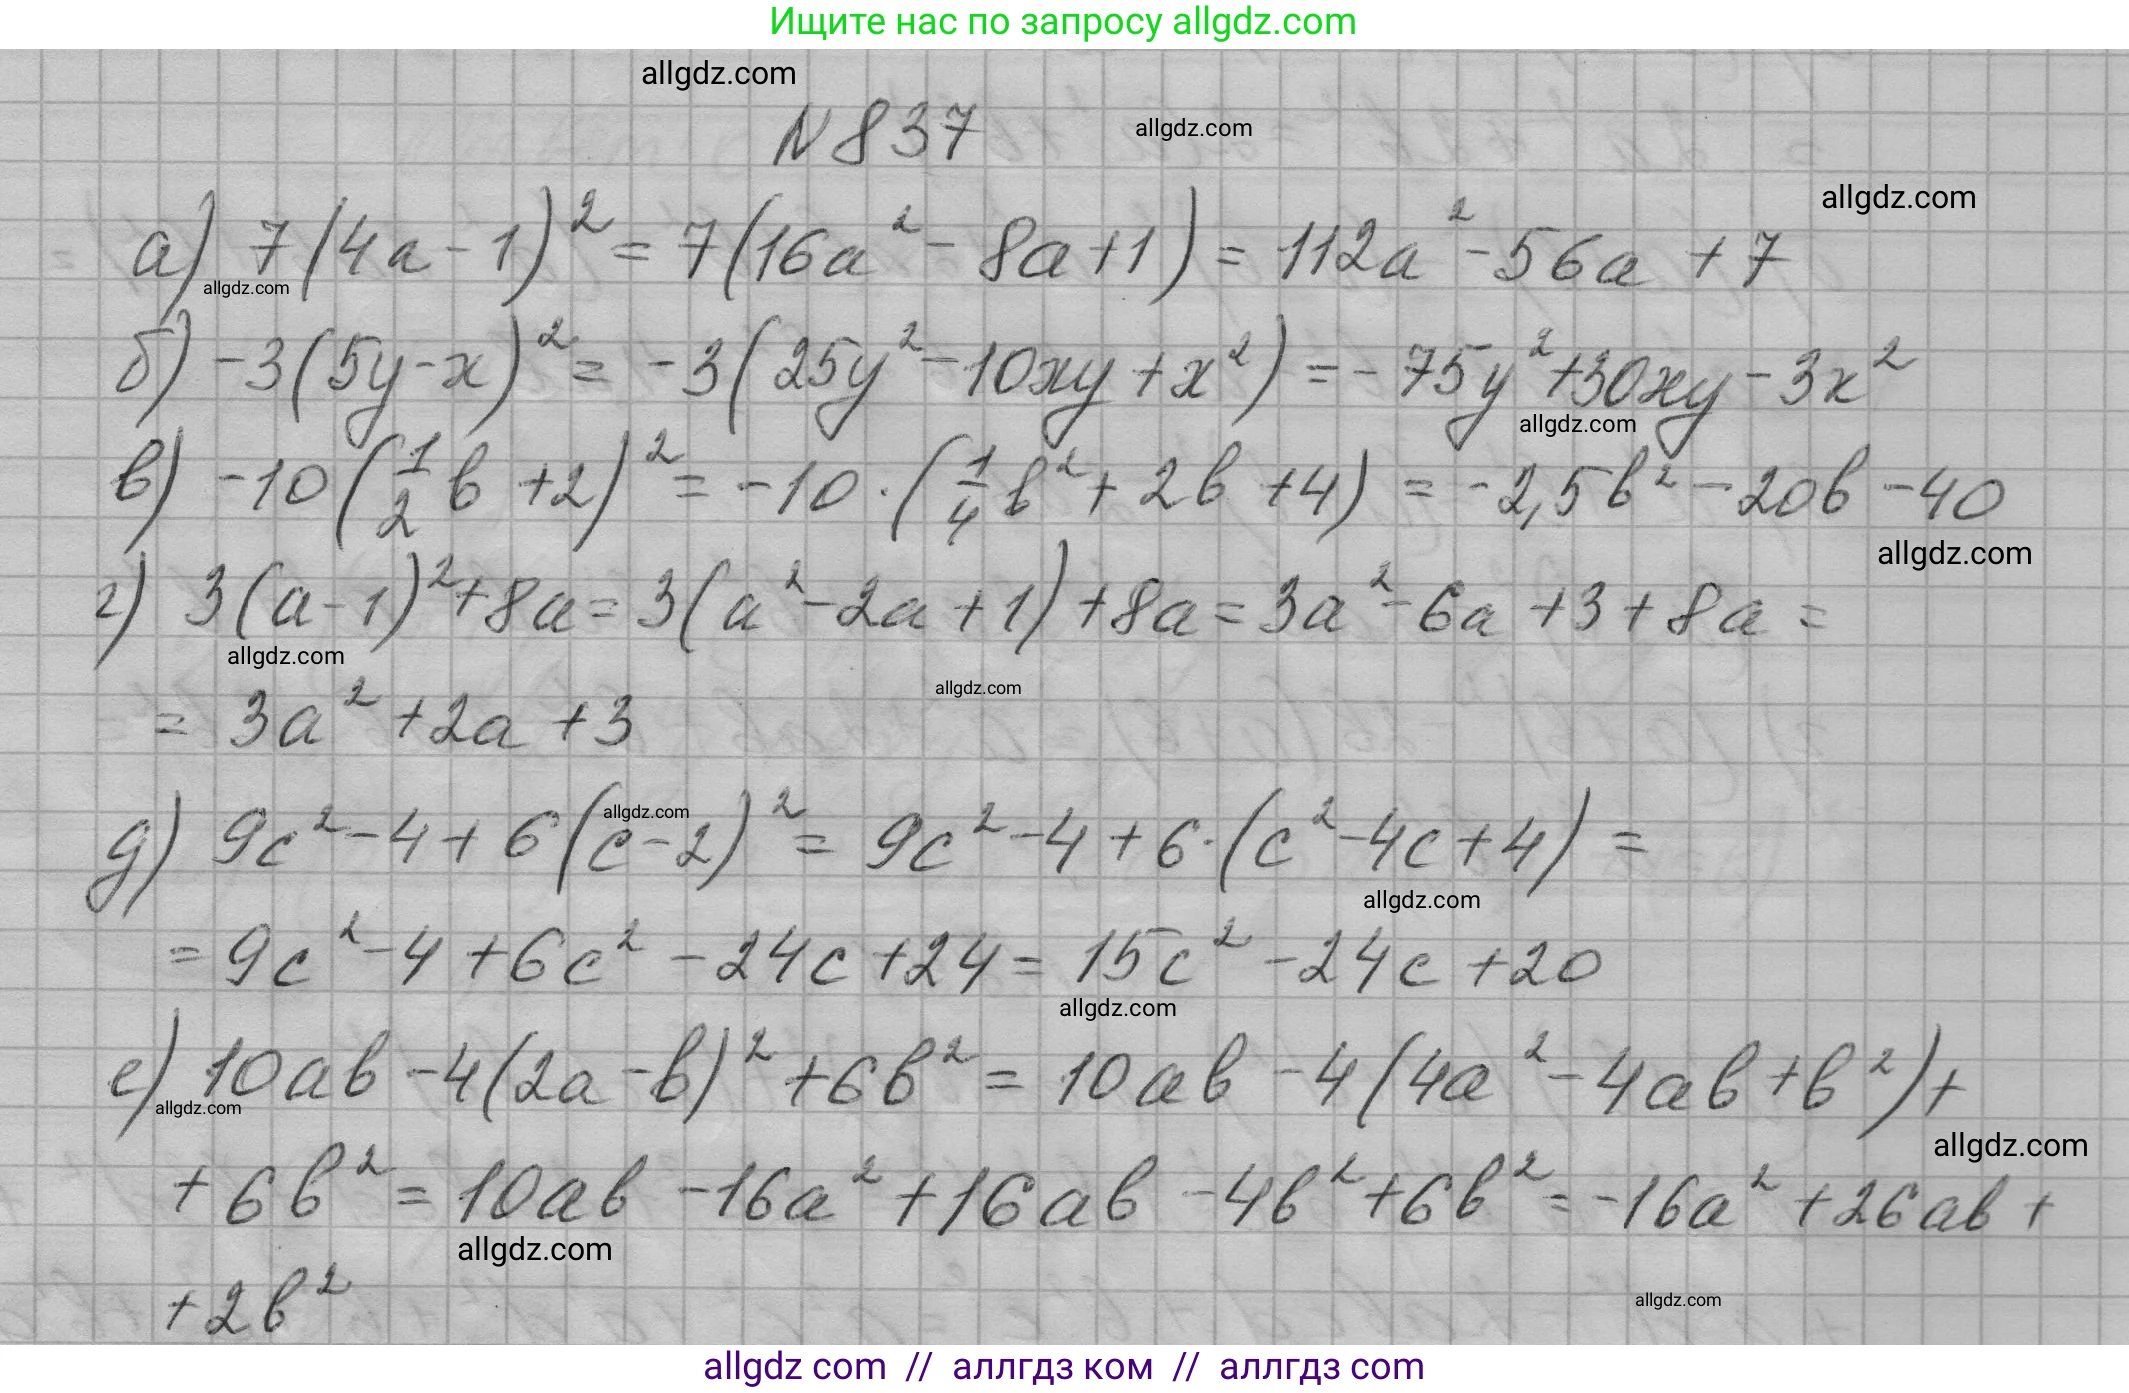 Ищите нас по запросу allgdz.com
allgdz.com
N 837
allgdz.com
allgdz.com
а) 7(4a-1)² = 7(16a² - 8a+1) = 112a² - 56a + 7
allgdz.com
б) -3(5y-x)² = -3(25y² - 10xy + x²) = -75y² + 30xy - 3x²
allgdz.com
в) -10(1/2 b + 2)² = -10·(1/4 b² + 2b + 4) = -2,5b² - 20b - 40
allgdz.com
г) 3(a-1)² + 8a = 3(a² - 2a + 1) + 8a = 3a² - 6a + 3 + 8a =
allgdz.com
allgdz.com
= 3a² + 2a + 3
allgdz.com
д) 9c² - 4 + 6(c-2)² = 9c² - 4 + 6·(c² - 4c + 4) =
allgdz.com
= 9c² - 4 + 6c² - 24c + 24 = 15c² - 24c + 20
allgdz.com
е) 10ab - 4(2a - b)² + 6b² = 10ab - 4(4a² - 4ab + b²) +
allgdz.com
allgdz.com
+ 6b² = 10ab - 16a² + 16ab - 4b² + 6b² = -16a² + 26ab +
allgdz.com
+ 2b²
allgdz.com
allgdz com // аллгдз ком // аллгдз com